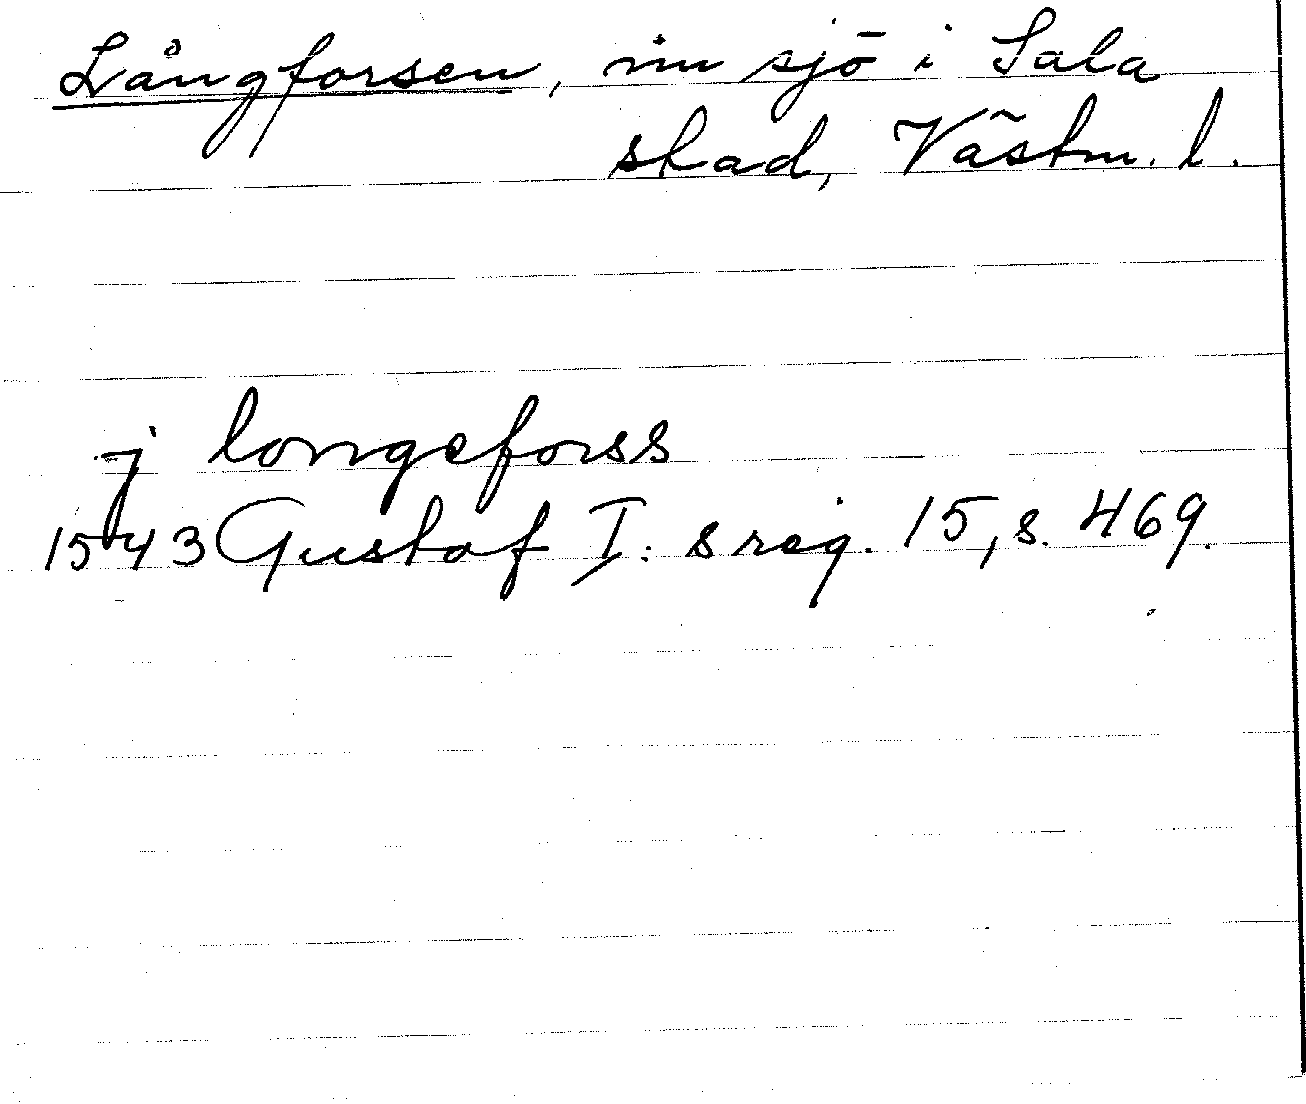 Långforsen, nu sjö i Sala
stad, Västm. l.
j longeforss
1543 Gustaf I:s reg. 15, s. 469.